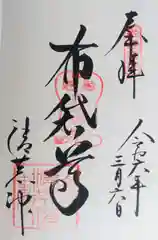 奉拝
令和六年
三月六日
布袋尊
清荒神